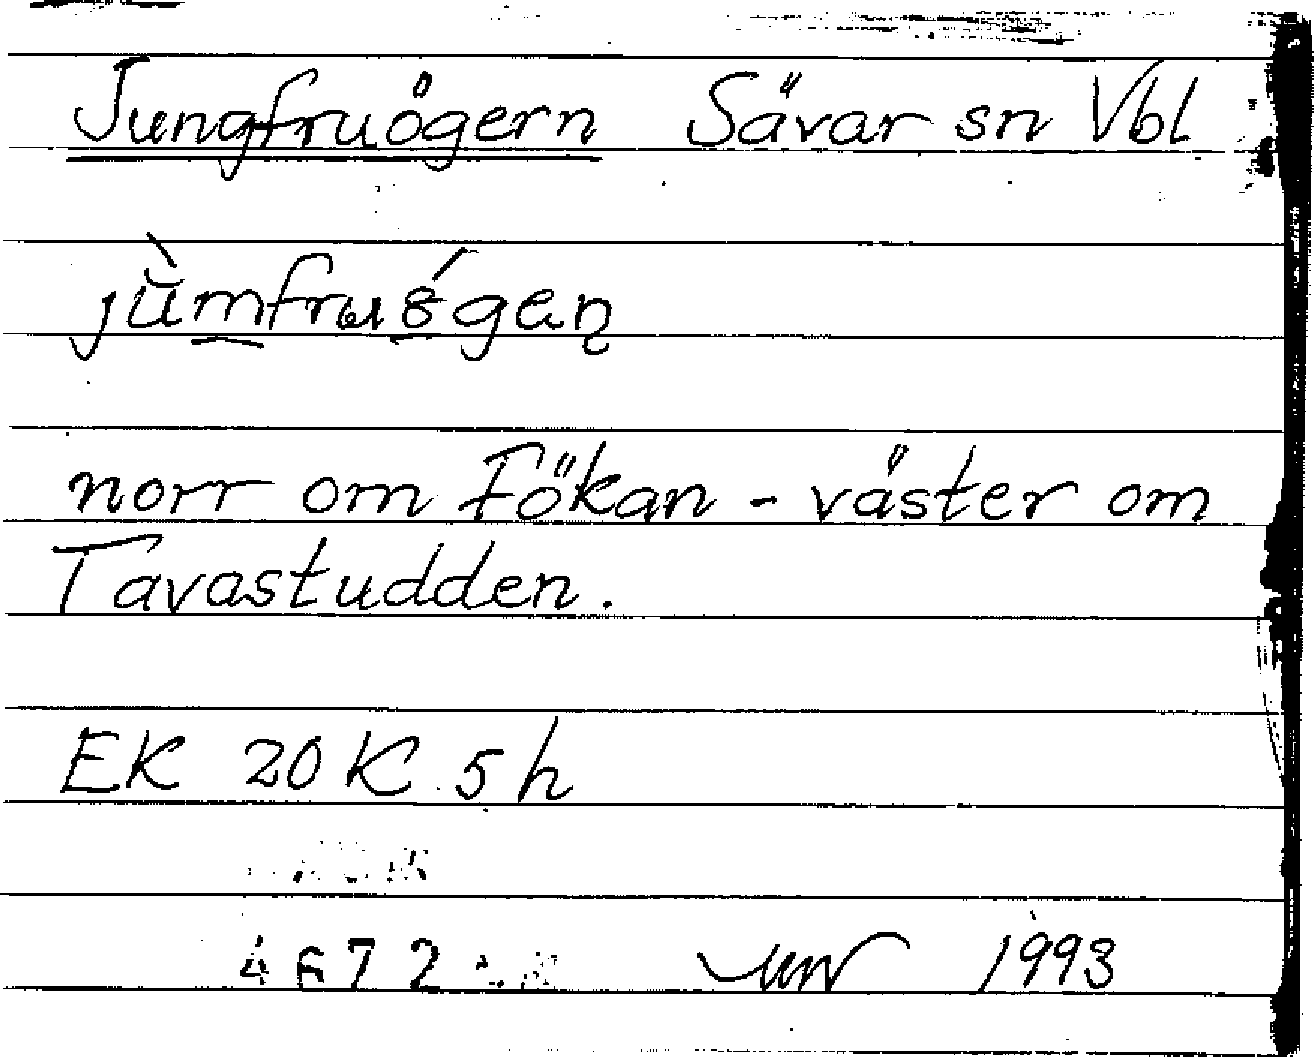 Jungfruögern Sävar sn Vbl
norr om Fökan - väster om
Tavastudden.
EK 20 K 5 h
4672 1993